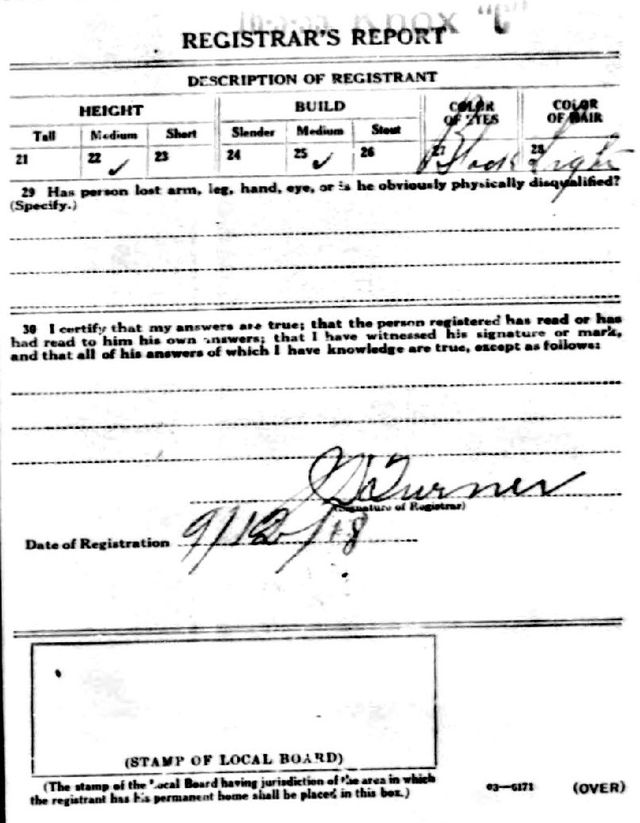 Knox "C"
REGISTRAR'S REPORT
DESCRIPTION OF REGISTRANT
HEIGHT BUILD COLOR OF EYES COLOR OF HAIR
Tall Medium Short Slender Medium Stout
21 22 ✓ 23 24 25 ✓ 26 27 Black 28 Light
29 Has person lost arm, leg, hand, eye, or is he obviously physically disqualified?
(Specify.)
30 I certify that my answers are true; that the person registered has read or has
had read to him his own answers; that I have witnessed his signature or mark,
and that all of his answers of which I have knowledge are true, except as follows:
Turner
(Signature of Registrar)
Date of Registration 9/12/18
(STAMP OF LOCAL BOARD)
(The stamp of the Local Board having jurisdiction of the area in which
the registrant has his permanent home shall be placed in this box.)
03—6171 (OVER)